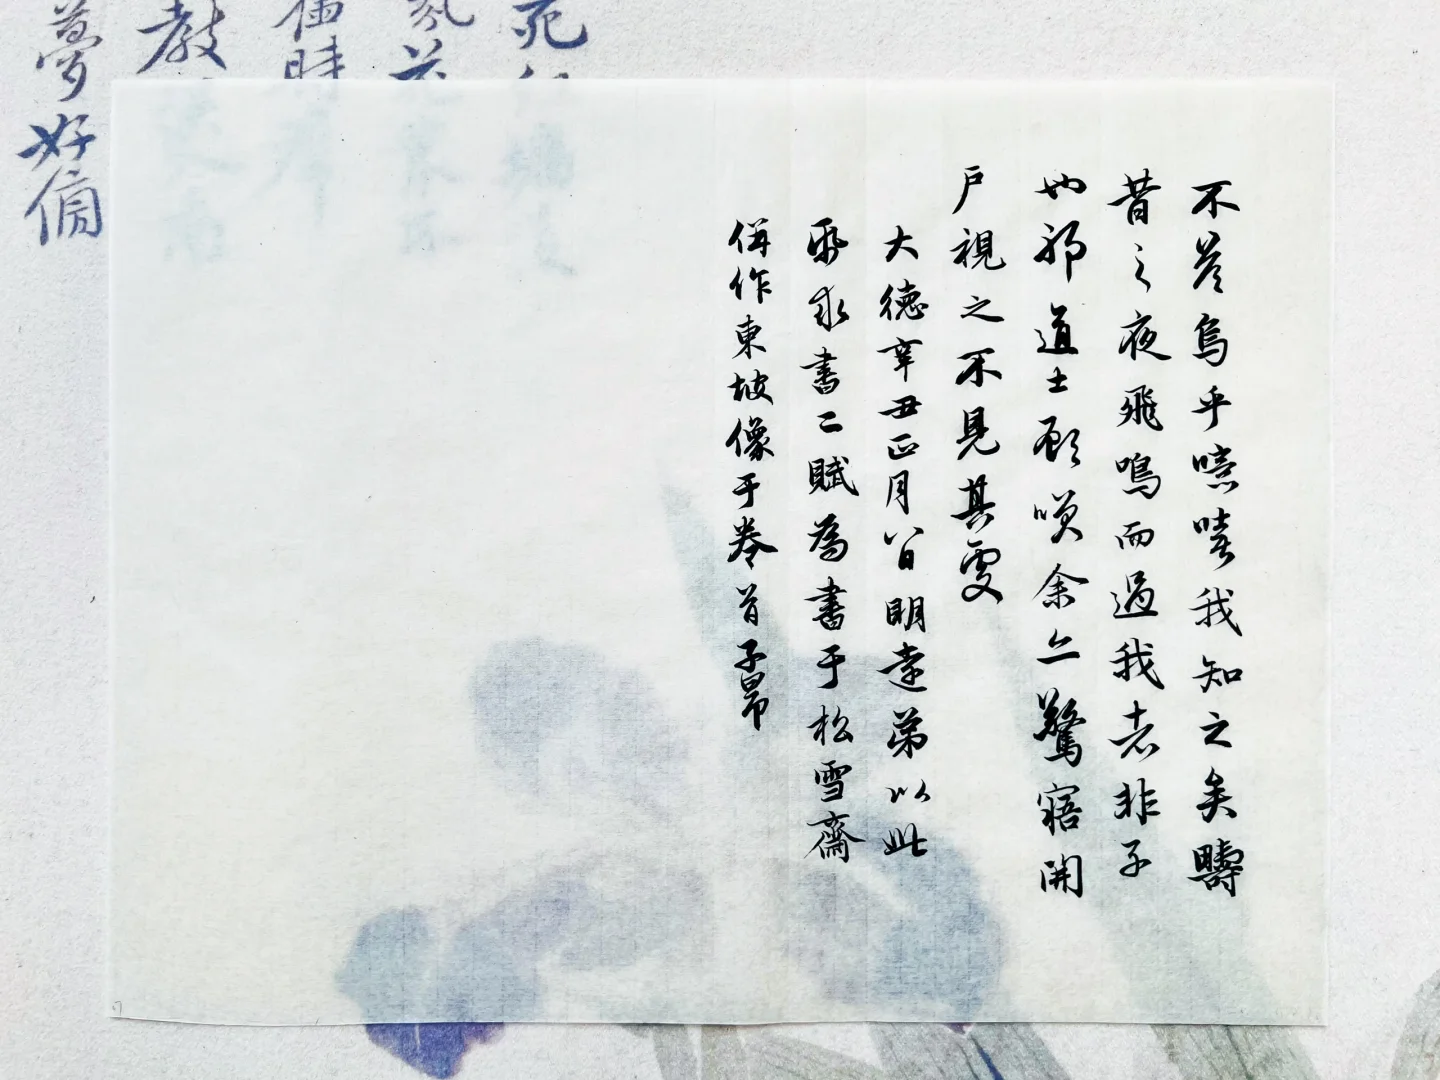 不答烏乎噫嘻我知之矣疇
昔之夜飛鳴而過我者非子
也邪道士顧咲余亦驚寤開
戶視之不見其處
大德辛丑正月八日明遠弟以此
帋求書二賦為書于松雪齋
併作東坡像于卷首子昂
死
花
時
教
夢好